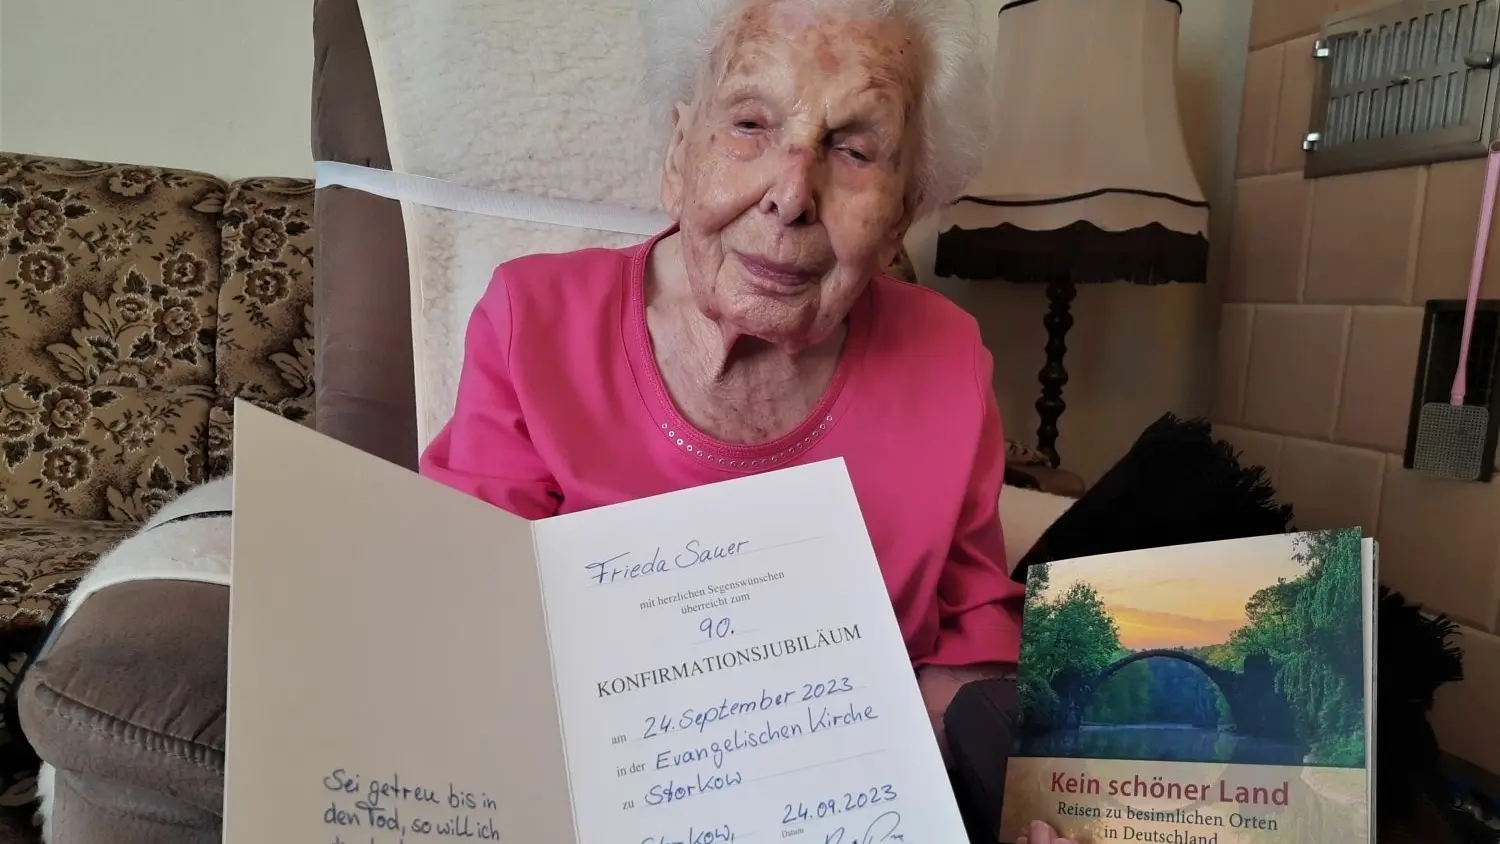 Frieda Sauer
mit herzlichen Segenswünschen
überreicht zum
90.
KONFIRMATIONSJUBILÄUM
am 24. September 2023
in der Evangelischen Kirche
zu Storkow
24.09.2023
Datum
Sei getreu bis in
den Tod, so will ich
Kein schöner Land
Reisen zu besinnlichen Orten
in Deutschland